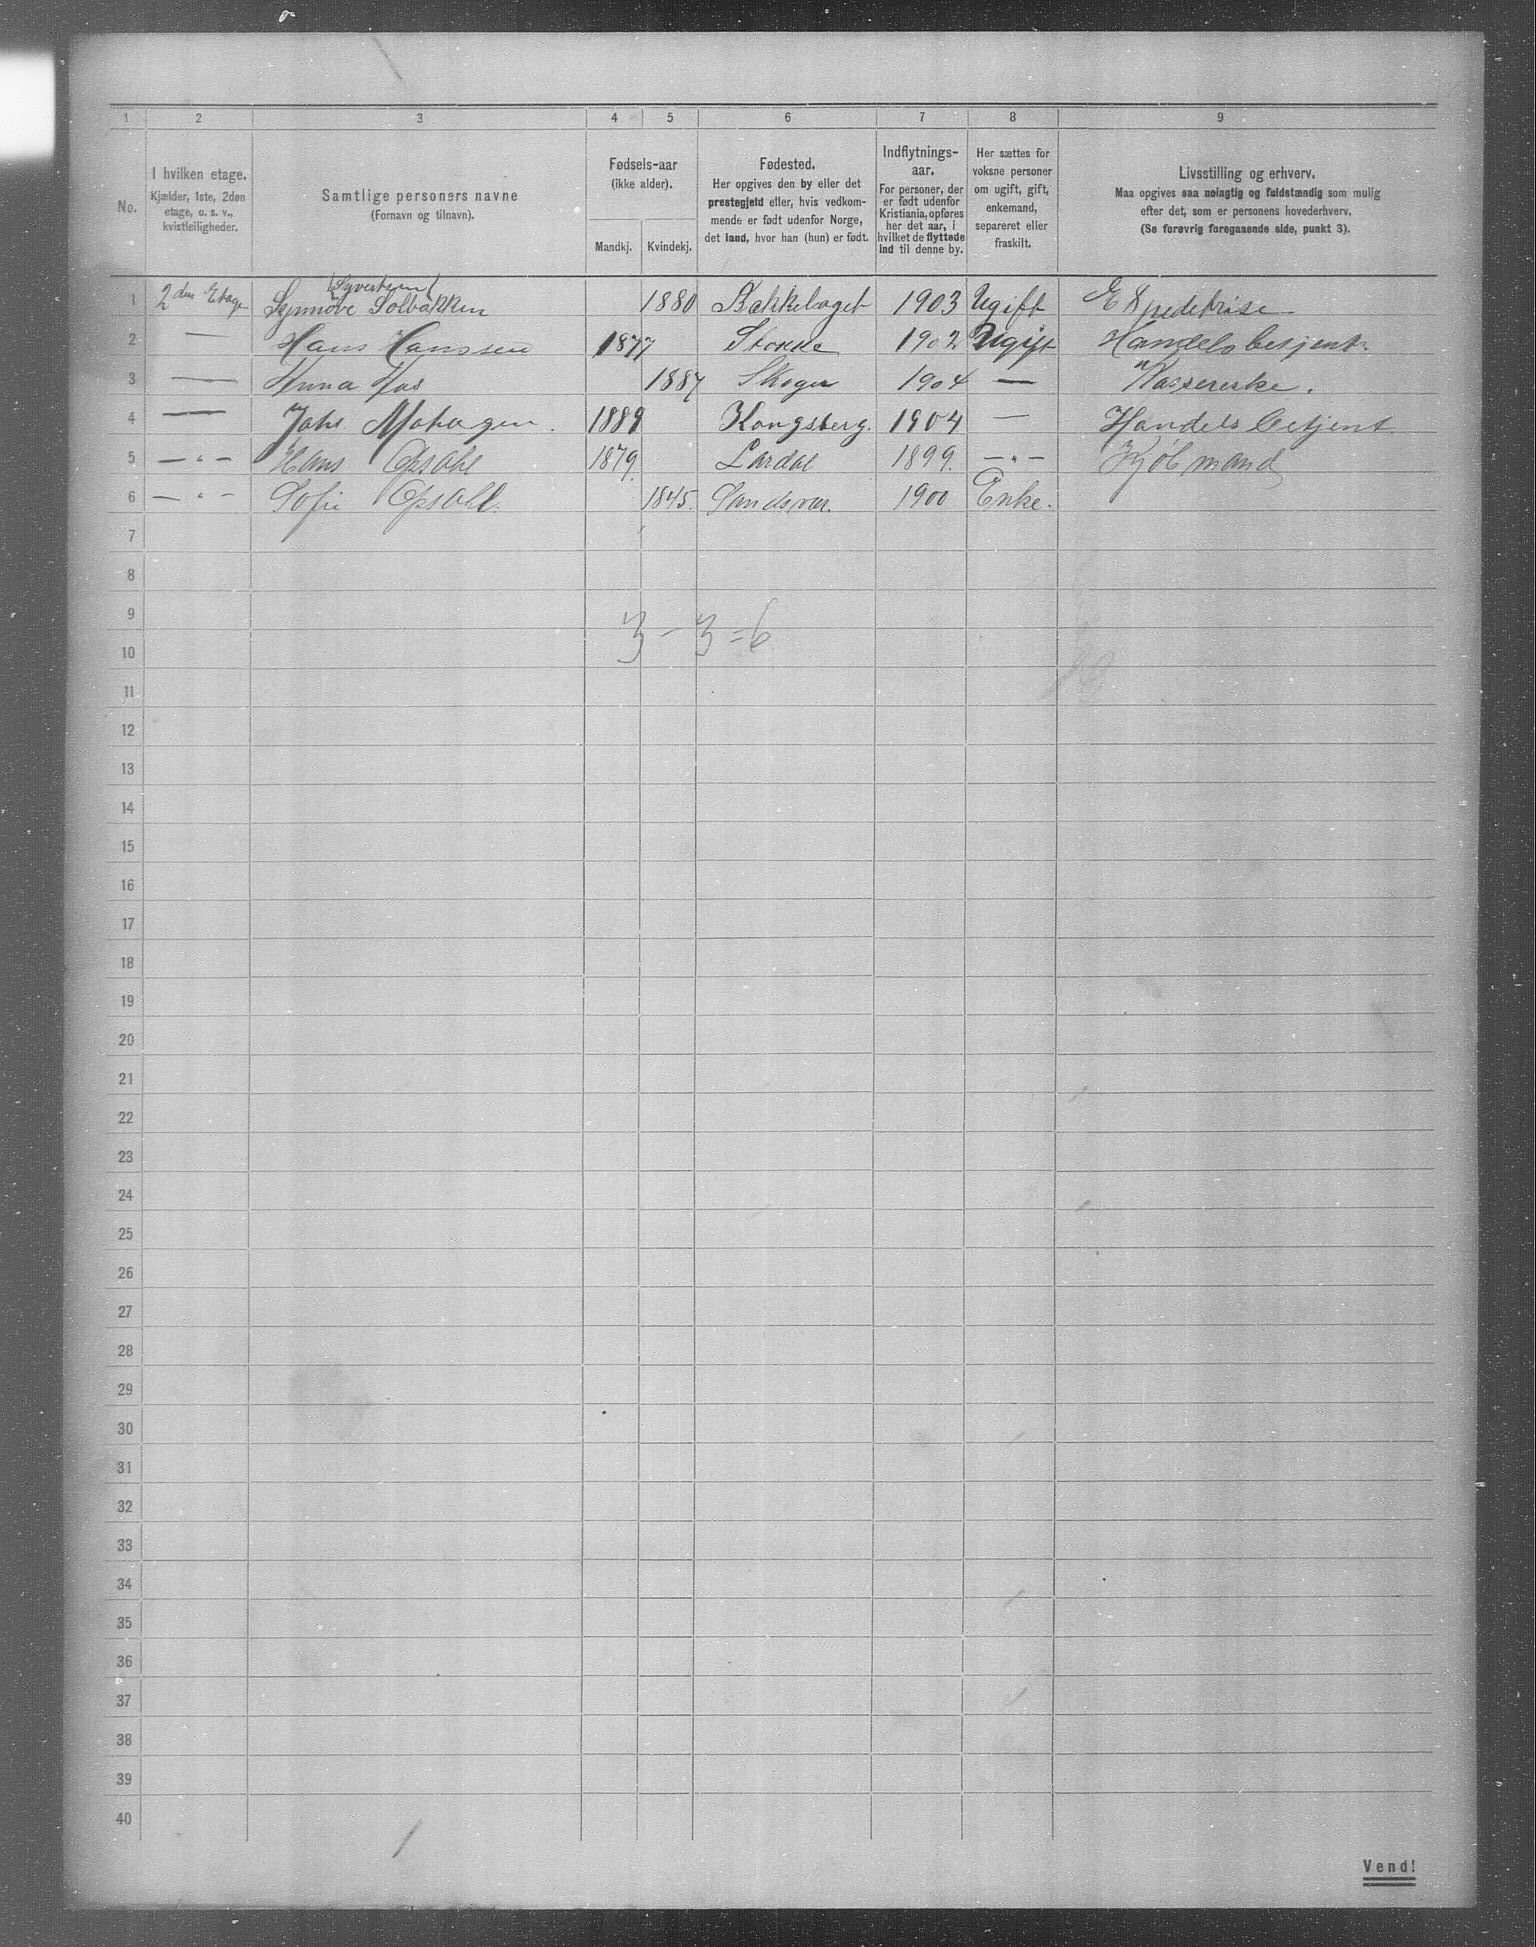 1 2 3 4 5 6 7 8 9
No.
I hvilken etage.
Kjælder, 1ste, 2den
etage, o. s. v.,
kvistleiligheder.
Samtlige personers navne
(Fornavn og tilnavn).
Fødsels-aar
(ikke alder).
Mandkj. Kvindekj.
Fødested.
Her opgives den by eller det
prestegjeld eller, hvis vedkom-
mende er født udenfor Norge,
det land, hvor han (hun) er født.
Indflytnings-
aar.
For personer, der
er født udenfor
Kristiania, opføres
her det aar, i
hvilket de flyttede
ind til denne by.
Her sættes for
voksne personer
om ugift, gift,
enkemand,
separeret eller
fraskilt.
Livsstilling og erhverv.
Maa opgives saa nøiagtig og fuldstændig som mulig
efter det, som er personens hovederhverv.
(Se forøvrig foregaaende side, punkt 3).
1 2den Etage Synnøve Solbakken 1880 Bækkelaget 1903 Ugift Expedetrise
2 — Hans Hanssen 1877 Stokke 1902 Ugift Handelsbetjent
3 — Anna Aas 1887 Skoger 1904 — Kassererske.
4 — Johs 1889 Kongsberg. 1904 — Handelsbetjent
5 — " — Hans Opsahl 1879. Lardal 1899. — " — Kjøbmand
6 — " — Sofie Opsahl. 1845. Sandsvær. 1900 Enke.
7
8
9
3 - 3 = 6
10
11
12
13
14
15
16
17
18
19
20
21
22
23
24
25
26
27
28
29
30
31
32
33
34
35
36
37
38
39
40
Vend!